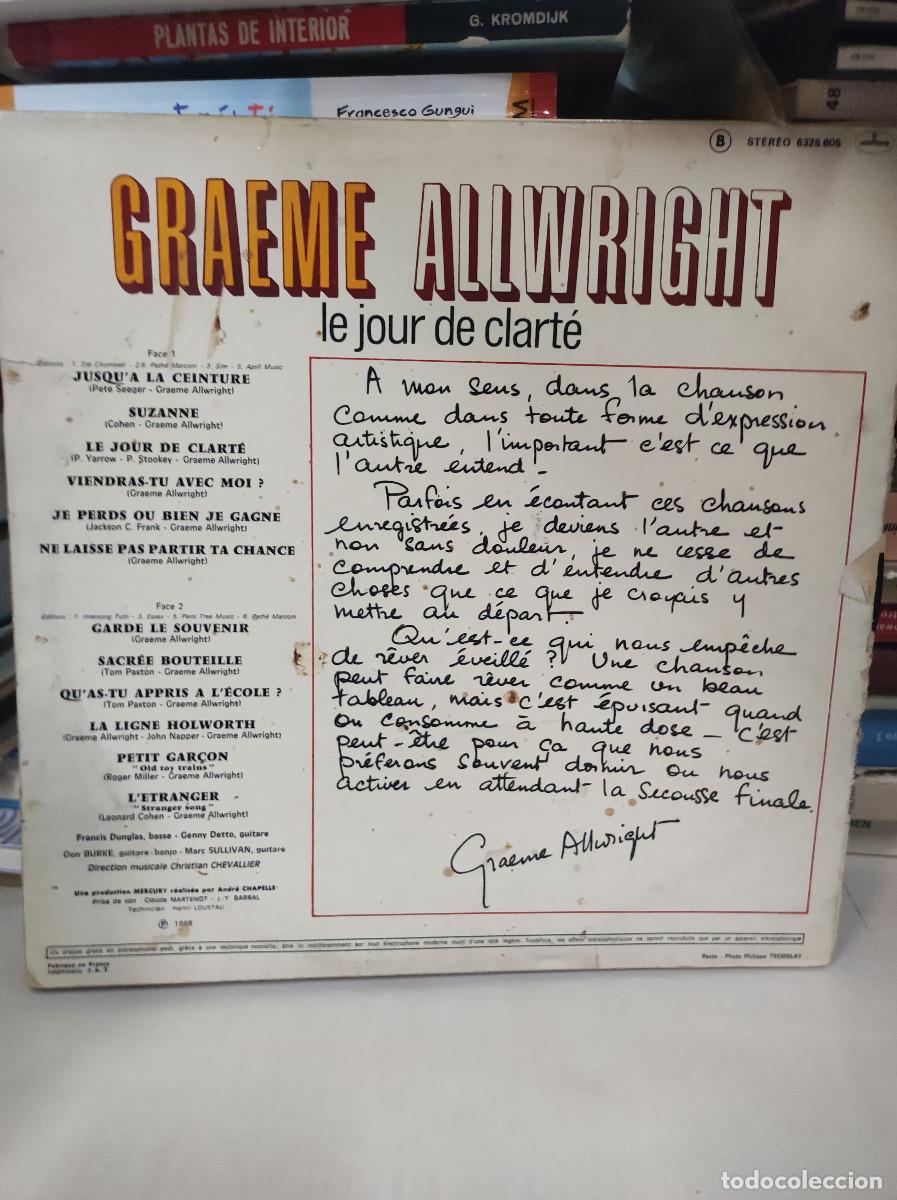 PLANTAS DE INTERIOR
G. KROMDIJK
Francesco Gungui
48
B STÉRÉO 6325 605
GRAEME ALLWRIGHT
le jour de clarté
Face 1
JUSQU'A LA CEINTURE
(Pete Seeger - Graeme Allwright)
SUZANNE
(Cohen - Graeme Allwright)
LE JOUR DE CLARTÉ
(P. Yarrow - P. Stookey - Graeme Allwright)
VIENDRAS-TU AVEC MOI ?
(Graeme Allwright)
JE PERDS OU BIEN JE GAGNE
(Jackson C. Frank - Graeme Allwright)
NE LAISSE PAS PARTIR TA CHANCE
(Graeme Allwright)
Face 2
GARDE LE SOUVENIR
(Graeme Allwright)
SACRÉE BOUTEILLE
(Tom Paxton - Graeme Allwright)
QU'AS-TU APPRIS A L'ÉCOLE ?
(Tom Paxton - Graeme Allwright)
LA LIGNE HOLWORTH
(Graeme Allwright - John Napper - Graeme Allwright)
PETIT GARÇON
"Old toy trains"
(Roger Miller - Graeme Allwright)
L'ETRANGER
"Stranger song"
(Leonard Cohen - Graeme Allwright)
Francis Dunglas, basse - Genny Detto, guitare
Don BURKE, guitare - banjo - Marc SULLIVAN, guitare
Direction musicale Christian CHEVALLIER
Une production MERCURY réalisée par André CHAPELLE
Prise de son Claude MARTENOT - J.-Y BARRAL
Technicien Henri LOUSTAU
℗ 1968
A mon sens, dans la chanson
comme dans toute forme d'expression
artistique, l'important c'est ce que
l'autre entend -
Parfois en écoutant ces chansons
enregistrées, je deviens l'autre et
non sans douleur, je ne cesse de
comprendre et d'entendre d'autres
choses que ce que je croyais y
mettre au départ.
Qu'est-ce qui nous empêche
de rêver éveillé ? Une chanson
peut faire rêver comme un beau
tableau, mais c'est épuisant quand
on consomme à haute dose - c'est
peut-être pour ça que nous
préferons souvent dormir ou nous
activer en attendant la Secousse finale.
Graeme Allwright
Fabriqué en France
Recto - Photo Philippe TREMBLAY
todocoleccion